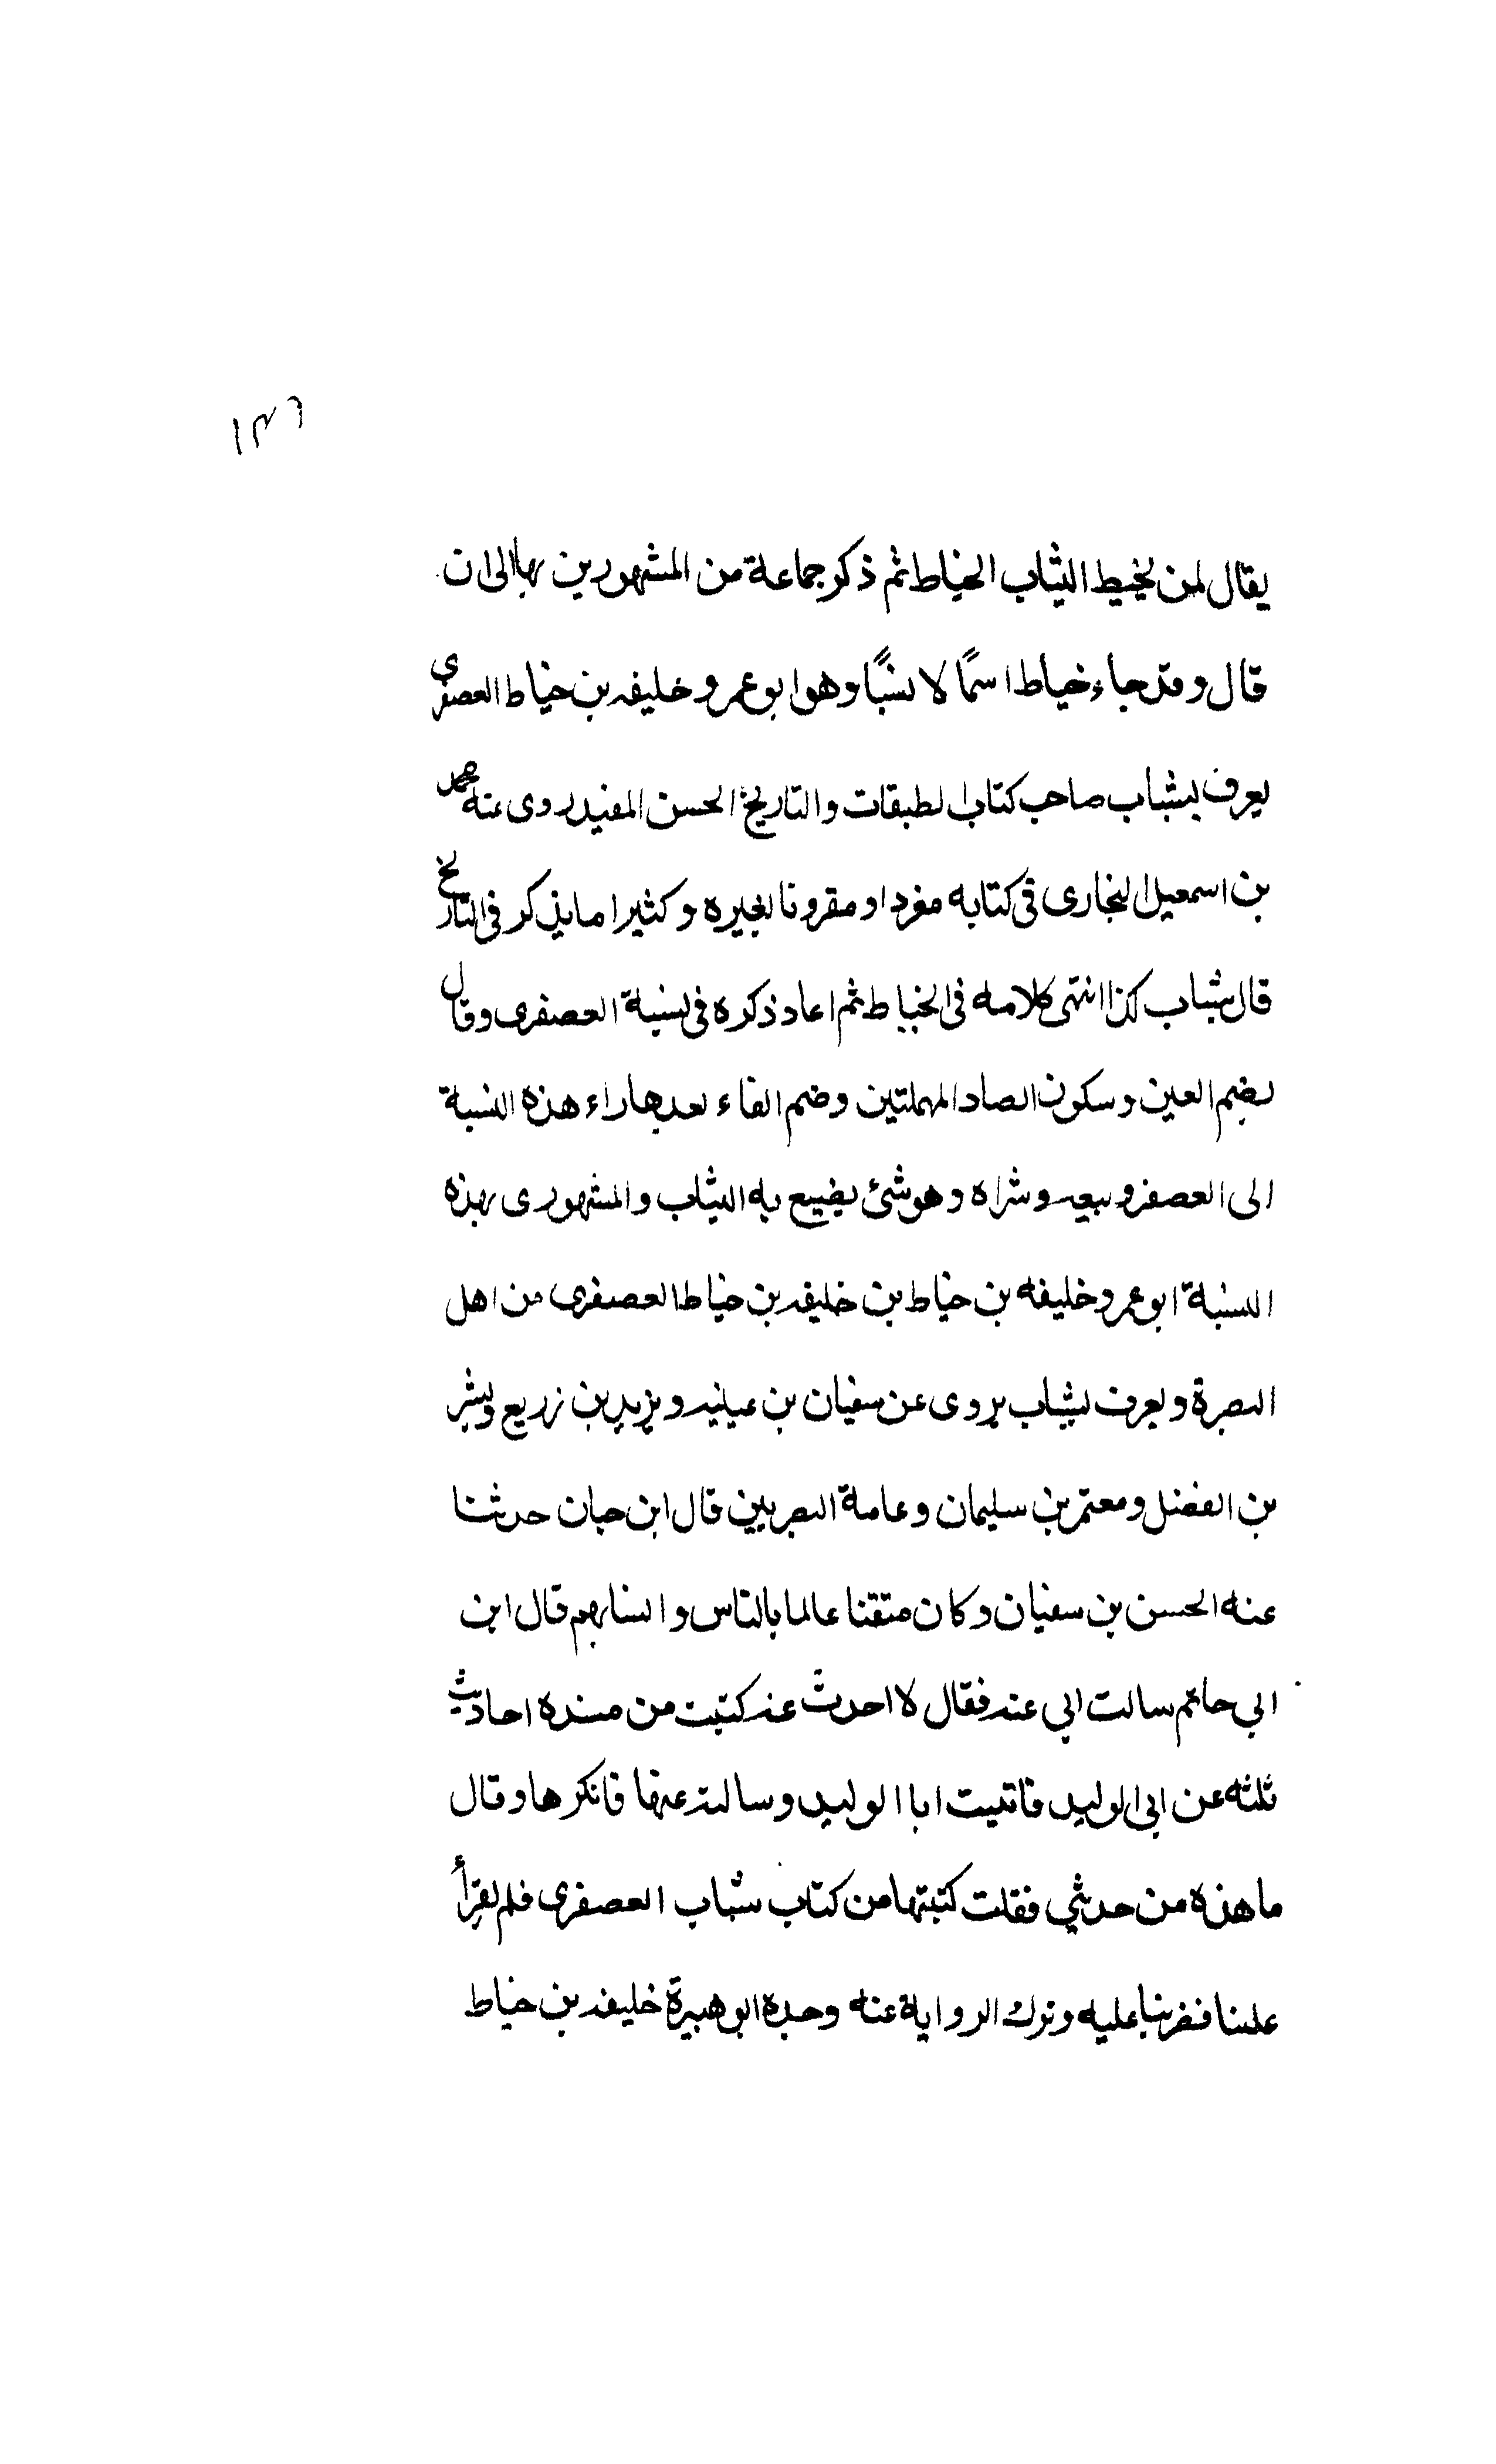 ١٣٦
يقال لمن يخيط الثياب الخياط ثم ذكر جماعة من المشهورين بها الى ان
قال وقد جاء خياط اسمًا لا نسبًا وهو ابو عمرو خليفه بن خياط العصفرى
يعرف بشباب صاحب كتاب الطبقات والتاريخ الحسن المفيد روى عنه محمد
بن اسمعيل البخارى فى كتابه مفردا ومقرونا بغيره وكثيرا ما يذكر فى التاريخ
قال شباب كذا انتهى كلامه فى الخياط ثم اعاد ذكره فى نسبة العصفرى وقال
بضم العين وسكون الصاد المهملتين وضم الفاء بعدها راء هذه النسبة
الى العصفر وبيعه وشراه وهو شئ يضبع به الثياب والمشهورى بهذه
النسبة ابو عمرو خليفه بن خياط بن خليفه بن خياط العصفرى من اهل
البصرة ويعرف بشباب يروى عن سفيان بن عيينه ويزيد بن زريع وبشر
بن الفضل ومعتمر بن سليمان وعامة البصريين قال ابن حبان حدثنا
عنه الحسن بن سفيان وكان متقنا عالما بالناس وانسابهم قال ابن
ابي حاتم سالت ابي عنه فقال لا احدث عنه كتبت من مسنده احاديث
ثلثه عن ابى الوليد فاتيت ابا الوليد وسالته عنها فانكرها وقال
ما هذه من حديثي فقلت كتبتها من كتاب شباب العصفرى فلم يقرأ
علينا فضربنا عليه وترك الرواية عنه وجده ابو هبيرة خليفه بن خياط